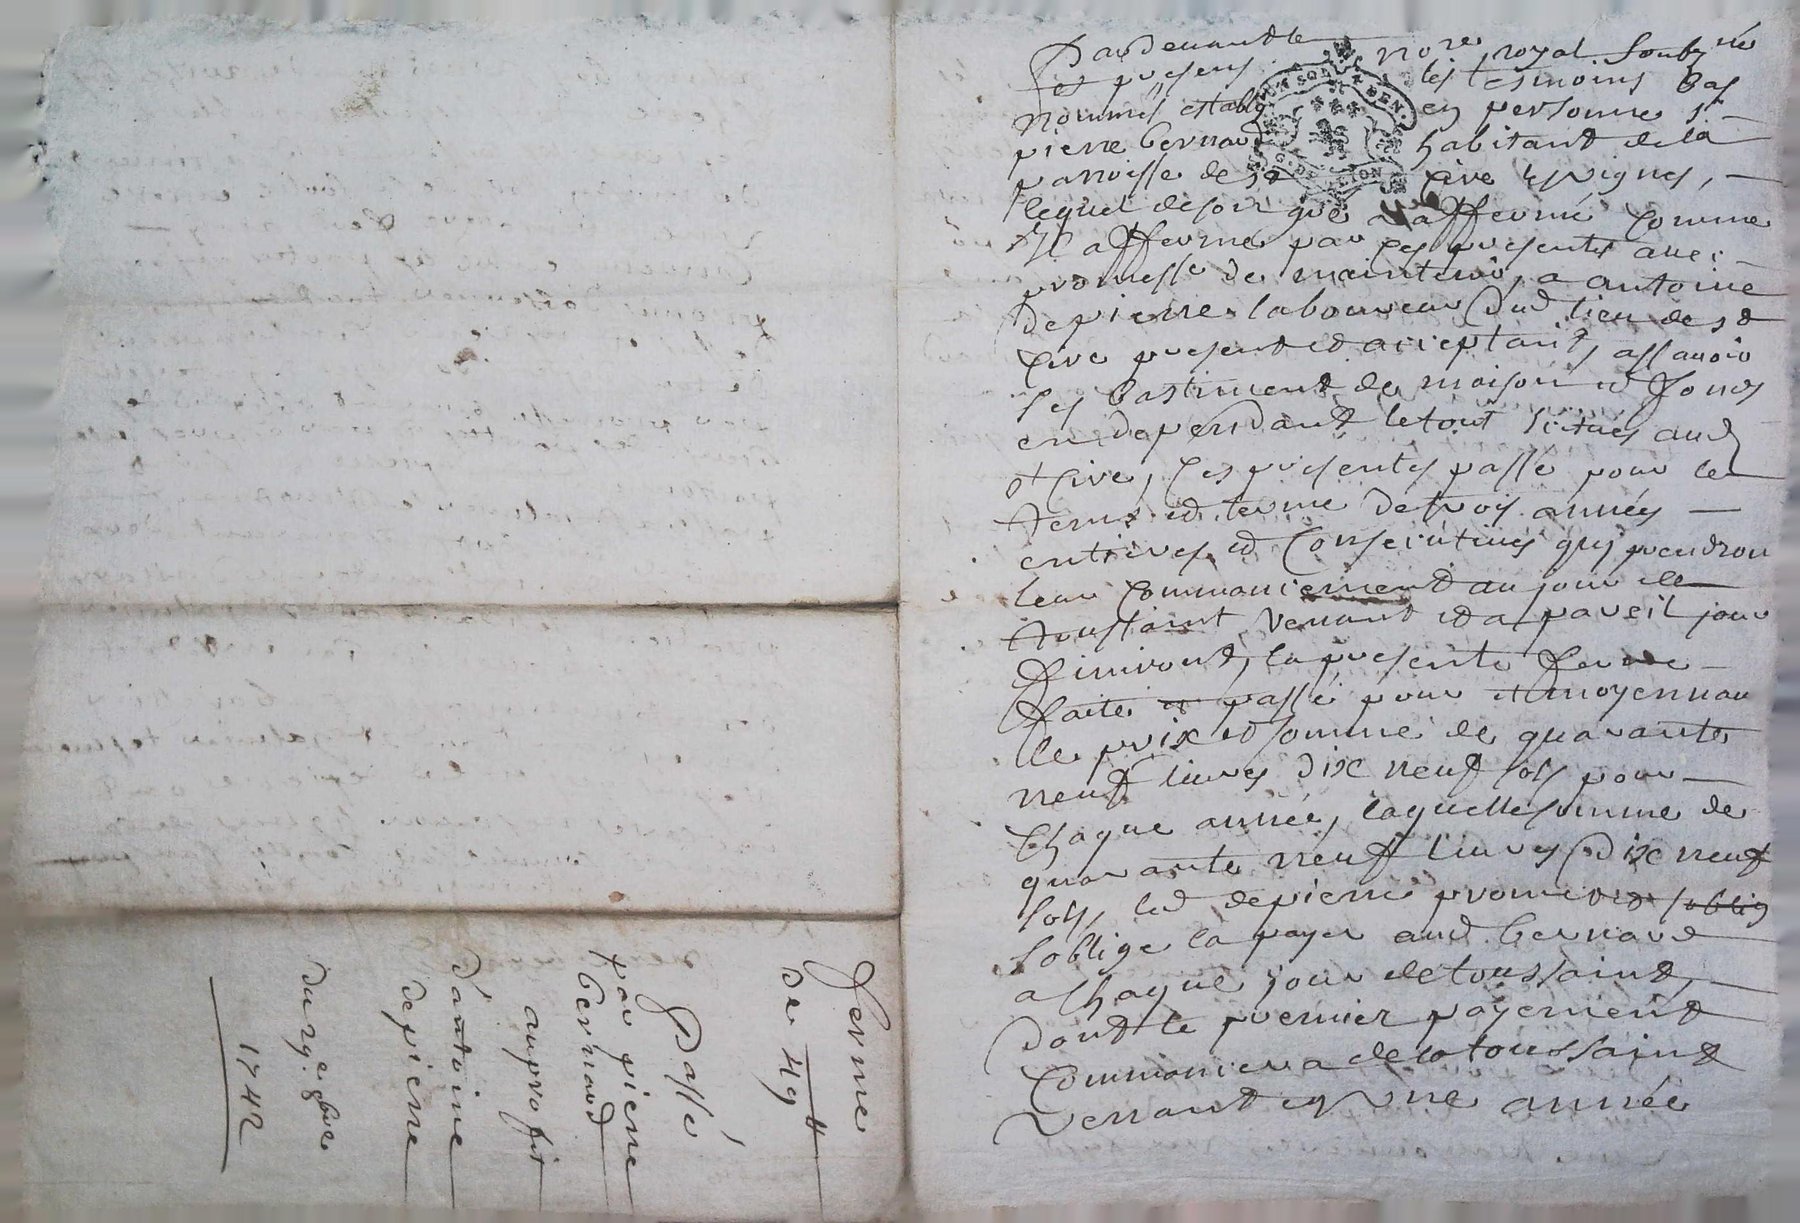 Pardevant le no.re royal soubz.né
et presens les tesmoins bas
nommés estably en personne sr
pierre bernard habitant de la
parroisse de st cire les vignes,
lequel de son gré a affermé comme
Il afferme par ces presentes avec
promesse de maintenir, a antoine
depierre laboureur dud lieu de st
cire present et acceptant, assavoir
ses bastiment de maison et fonds
en dependant le tout situés aud
st cire, ces presentes passé pour le
tems et terme de trois années
entieres et consecutives quy prendron
leur commancement au jour de
toussaint venant et a pareil jour
finiront, la presente ferme
faite et passé pour et moyennan
le prix et somme de quarante
neuf livres dix neuf sols pour
chaque année, laquelle somme de
quarante neuf livres dix neuf
sols led depierre promet et soblig
soblige la payer aud bernard
a chaque jour de toussaint,
dont le premier payement
commancera de la toussaint
venant en une année
ferme
de 49 #
Passé
par pierre
bernard
au profit
d'antoine
depierre
du 29e 9bre
1742